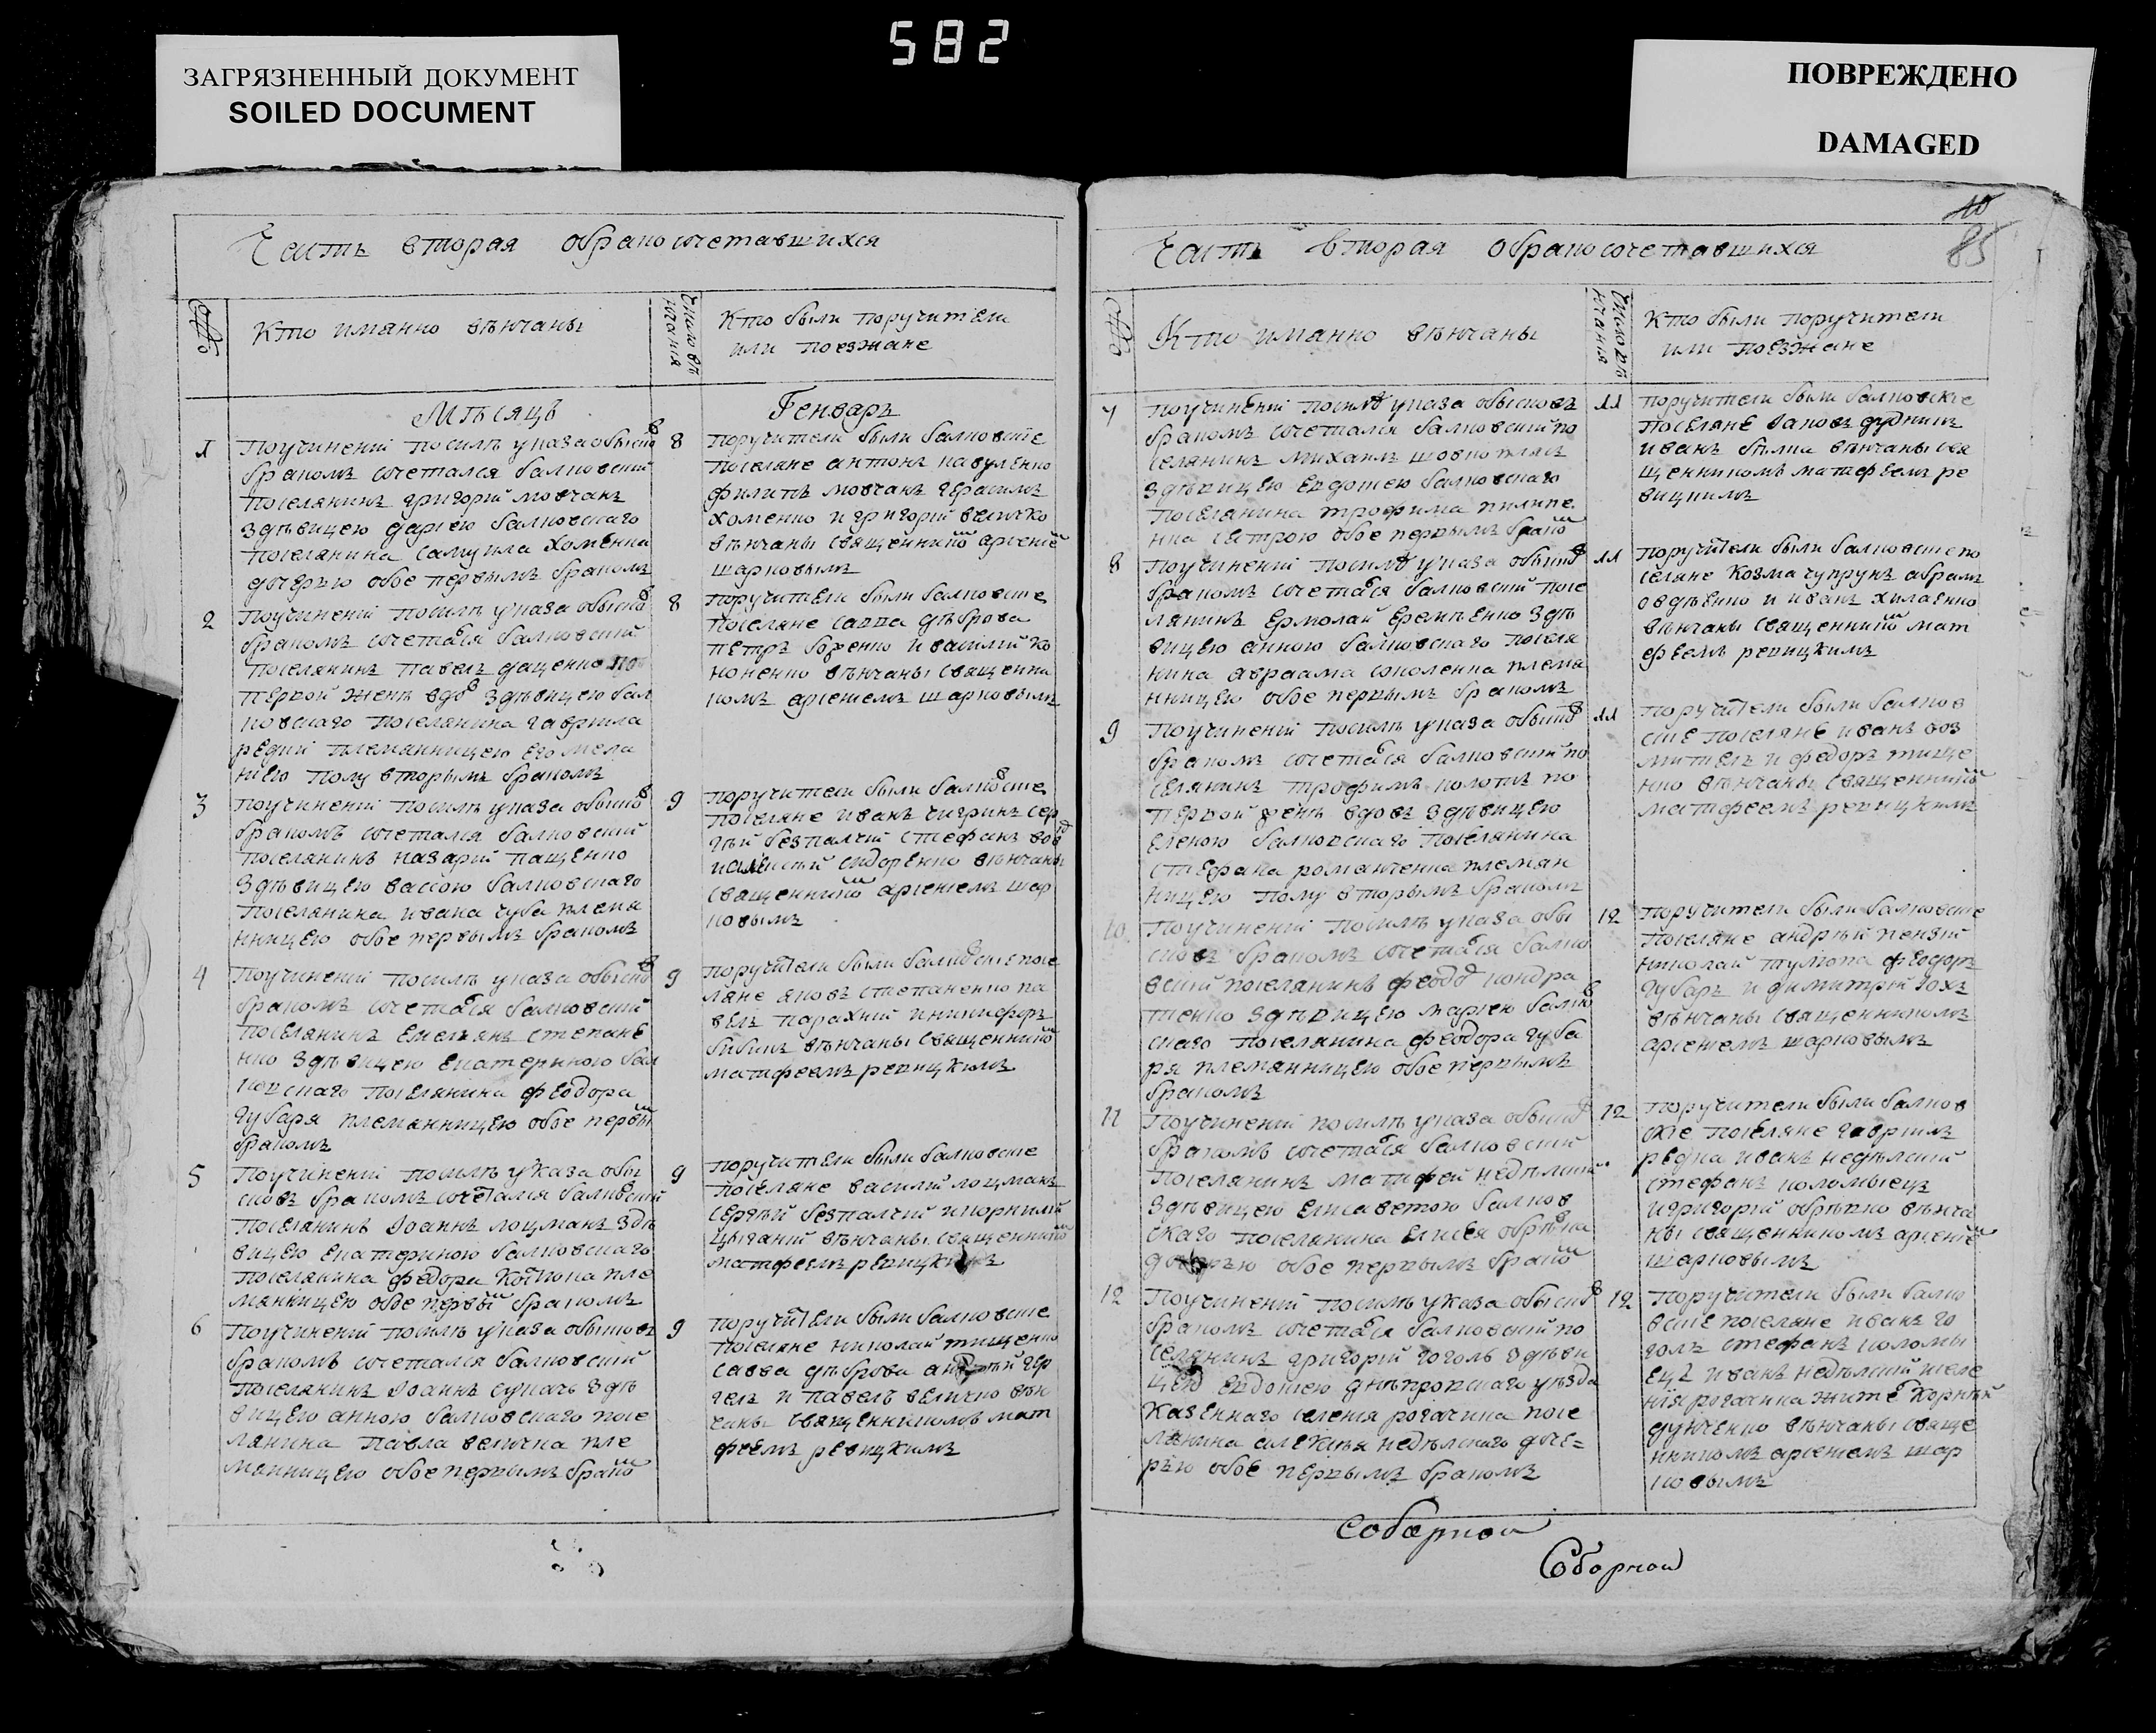 582
ЗАГРЯЗНЕННЫЙ ДОКУМЕНТ
SOILED DOCUMENT
ПОВРЕЖДЕНО
DAMAGED
Часть вторая обракосочетавшихся
№
Кто имянно вѣнчаны
Число вѣнчания
Кто были поручители
или поезжане
Мѣсяцъ Генварь
1
Поучинении посилѣ указа обысков
бракомъ сочетался балковский
поселянинъ григорий мовчанъ
здѣвицею дариею балковскаго
поселянина самуила хоменка
дочерью обое первымъ бракомъ
8
поручители были балковские
поселяне антонъ
филипъ мовчанъ герасимъ
хоменко и григорий величко
вѣнчаны священником арсением
шарковымъ
2
Поучинении посилѣ указа обысков
бракомъ сочетался балковский
поселянинъ павелъ даценко по
первой женѣ вдов здѣвицею бал
ковскаго поселянина гаврила
редки племянницею его мела
ниею полу вторымъ бракомъ
8
поручители были балковские
поселяне савва дѣброва
петръ боренко и василий ко
ноненко вѣнчаны священни
комъ арсениемъ шарковымъ
3
поучинении посилѣ указа обысков
бракомъ сочетался балковский
поселянинъ назарий пащенко
здѣвицею вассою балковскаго
поселянина ивана чуба племя
нницею обое первымъ бракомъ
9
поручители были балковские
поселяне иванъ чигринъ сер
гѣй безпалчий стефанъ
сидоренко вѣнчаны
священником арсениемъ шар
ковымъ
4
Поучинении посилѣ указа обысков
бракомъ сочетался балковский
поселянинъ емельянъ степане
нко здѣвицею екатериною бал
ковскаго поселянина феодора
губаря племянницею обое первым
бракомъ
9
поручители были балковские посе
ляне яковъ степаненко па
велъ и никифоръ
бибикъ вѣнчаны священником
матфеемъ ревицкимъ
5
Поучинении посилѣ указа обы
сковъ бракомъ сочетался балковский
поселянинъ Иоаннъ лоцманъ здѣ
вицею екатериною балковскаго
поселянина федора пле
мянницею обое первым бракомъ
9
поручители были балковские
поселяне василий лоцманъ
сергѣй безпалчий и корнилий
цыганий вѣнчаны священником
матфеемъ ревицкимъ
6
Поучинении посилѣ указа обысковъ
бракомъ сочетался балковский
поселянинъ Иоаннъ сукачъ здѣ
вицею анною балковскаго посе
лянина павла величка пле
мянницею обое первымъ браком
9
поручители были балковские
поселяне николай тищенко
савва дѣброва андрей гер
гель и павелъ величко вѣн
чаны священникомъ мат
феемъ ревицкимъ
10
85
Часть вторая обракосочетавшихся
№
Кто имянно вѣнчаны
Число вѣнчания
Кто были поручители
или поезжане
7
поучинении посилѣ указа обысковъ
бракомъ сочетался балковский по
селянинъ михаилъ шовкоплясъ
здѣвицею евдокиею балковскаго
поселянина трофима пилипе
нка сестрою обое первымъ браком
11
поручители были балковские
поселяне яковъ дудникъ
иванъ вѣнчаны свя
щенникомъ матфеемъ ре
вицкимъ
8
Поучинении посилѣ указа обысков
бракомъ сочетался балковский посе
лянинъ ермолай еременко здѣ
вицею анною балковскаго поселя
нина авраама соколенка племя
нницею обое первымъ бракомъ
11
поручители были балковские по
селяне козма чупрунъ абрамъ
овдѣенко и иванъ хилденко
вѣнчаны священником мат
феемъ ревицкимъ
9
Поучинении посилѣ указа обысков
бракомъ сочетался балковский по
селянинъ трофимъ по
первой женѣ вдовъ здѣвицею
еленою балковскаго поселянина
стефана романченка племян
ницею полу вторымъ бракомъ
11
поручители были балков
ские поселяне иванъ воз
и федоръ тище
нко вѣнчаны священником
матфеемъ ревицкимъ
10
Поучинении посилѣ указа обы
сковъ бракомъ сочетался балко
вский поселянинъ феодор кондра
тенко здѣвицею мариею балков
скаго поселянина феодора губа
ря племянницею обое первымъ
бракомъ
12
поручители были балковские
поселяне андрѣй пензий
николай феодоръ
губарь и димитрий гохъ
вѣнчаны священникомъ
арсениемъ шарковымъ
11
Поучинении посилѣ указа обысков
бракомъ сочетался балковский
поселянинъ матфей недѣлский
здѣвицею елисаветою балков
скаго поселянина елисея обрѣзка
дочерью обое первымъ браком
12
поручители были балков
ские поселяне гавриилъ
редка иванъ недѣлский
стефанъ коломыецъ
и григорий обрѣзко вѣнча
ны священникомъ арсением
шарковымъ
12
Поучинении посилѣ указа обысков
бракомъ сочетался балковский по
селянинъ григорий гоголь здѣви
цею евдокиею днѣпровскаго уѣзда
казеннаго селения рогачика посе
лянина алексѣя недѣлскаго доче=
рью обое первымъ бракомъ
12
поручители были балко
вские поселяне иванъ го
голь стефанъ коломы
ецъ иванъ недѣлский и селе
ния рогачика жител корнѣй
дунченко вѣнчаны свяще
нникомъ арсениемъ шар
ковымъ
Соборной
Соборной